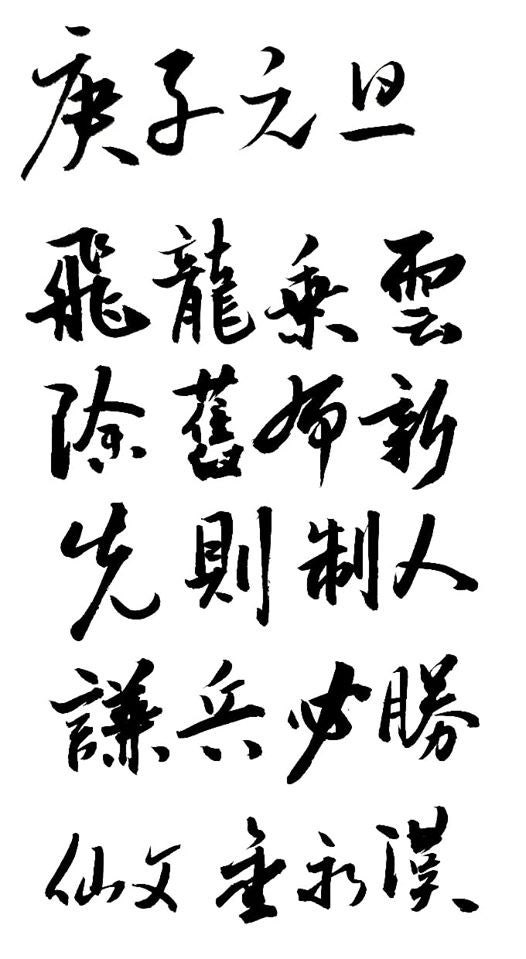 庚子元旦
飛龍乘雲
除舊布新
先則制人
謙兵必勝
仙文金永漢